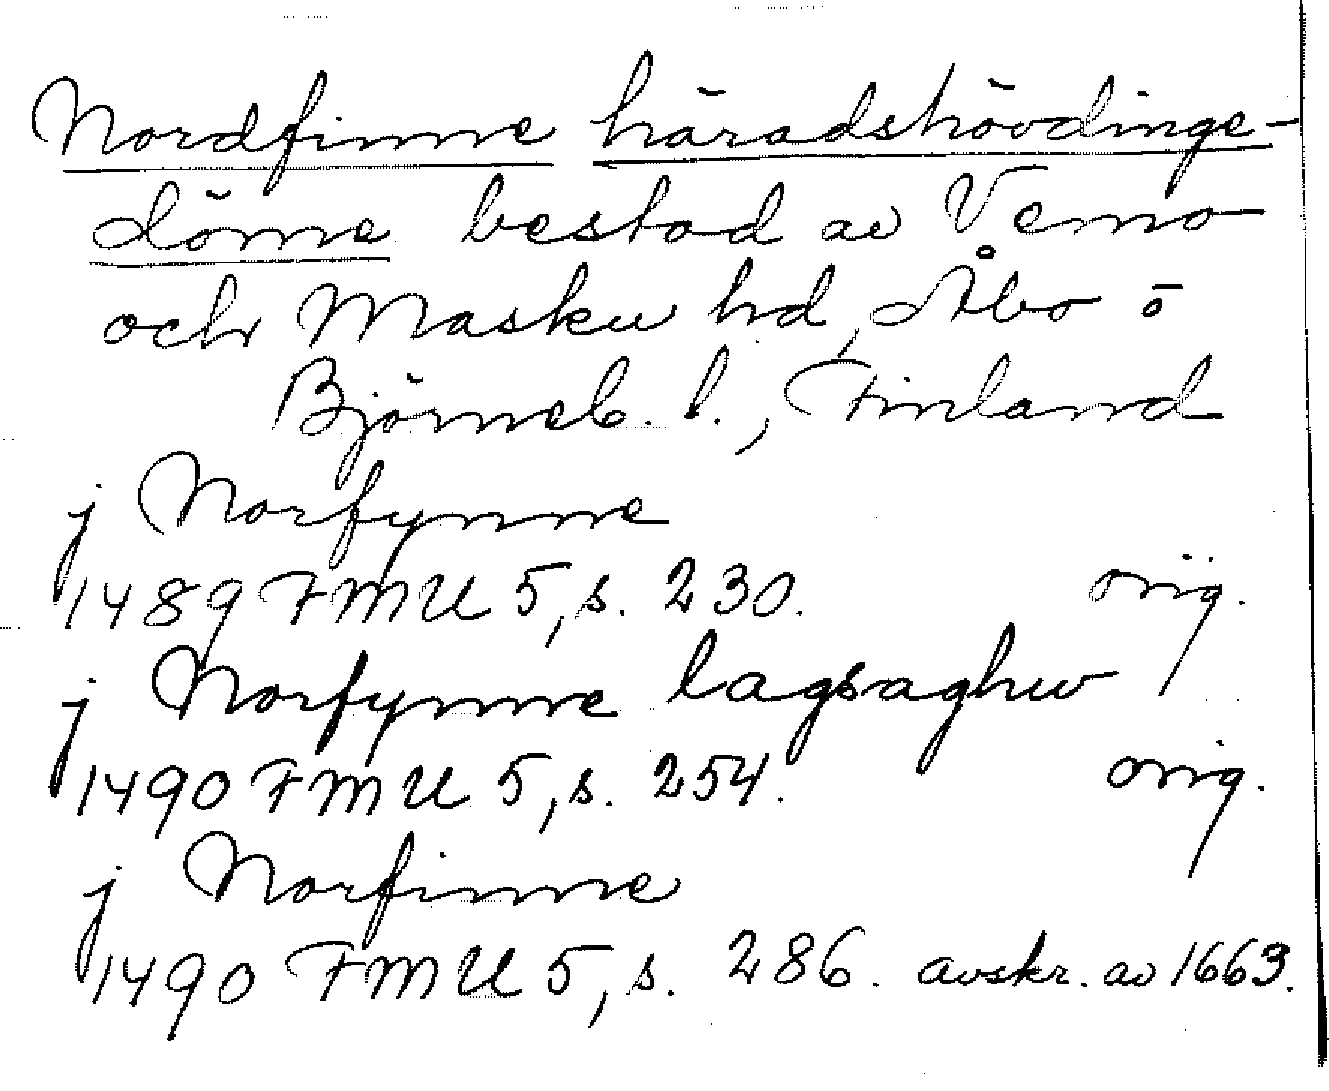 Nordfinne häradshövdinge-
döme bestod av Vemo
och Masku hd, Åbo o
Björneb. l., Finland
j Norfynne
1489 FMU 5, s. 230. orig.
j Norfynne lagsaghw
1490 FMU 5, s. 254. orig.
j Norfinne
1490 FMU 5, s. 286. avskr. av 1663.